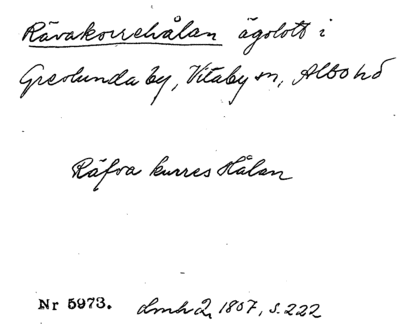 Rävakorrehålan ägolott i
Grevlunda by, Vitaby sn, Albo hd
Räfva kurres Hålan
Nr 5973. lmh 2, 1807, s. 222